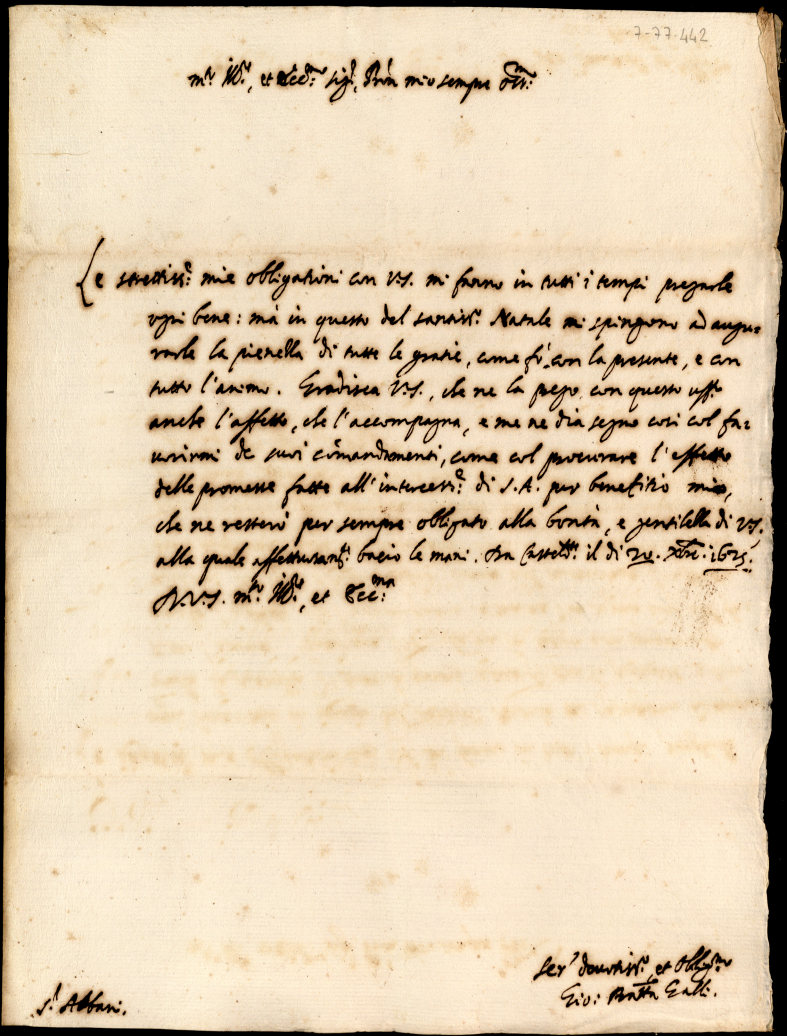 7-77-442
m.to Ill.re, et Ecc.mo Sig.r, Pron mio sempre oss.mo
Le strettiss.e mie obligationi con V.S. mi fanno in tutti i tempi pregarle
ogni bene: mà in questo del santiss.o Natale mi spingono ad augu=
rarle la pienezza di tutte le gratie, come fò con la presente, e con
tutto l'animo. Gradisca V.S., che ne la prego con questo uff.o
anche l'affetto, che l'accompagna, e me ne dia segno così col fa=
uorirmi de suoi comandamenti, come col procurare l'effetto
delle promesse fatte all'intercess.e di S.A. per benefitio mio,
che ne resterò per sempre obligato alla bontà, e gentilezza di V.S.,
alla quale affettuosam.te bacio le mani. Da Castel il di 20. Xbre. 1625.
D.V.S. m.to Ill.re, et Ecc.ma
Ser.r deuotiss.o, et oblig.mo
Gio: Batta Galli.
S.r Abbani.